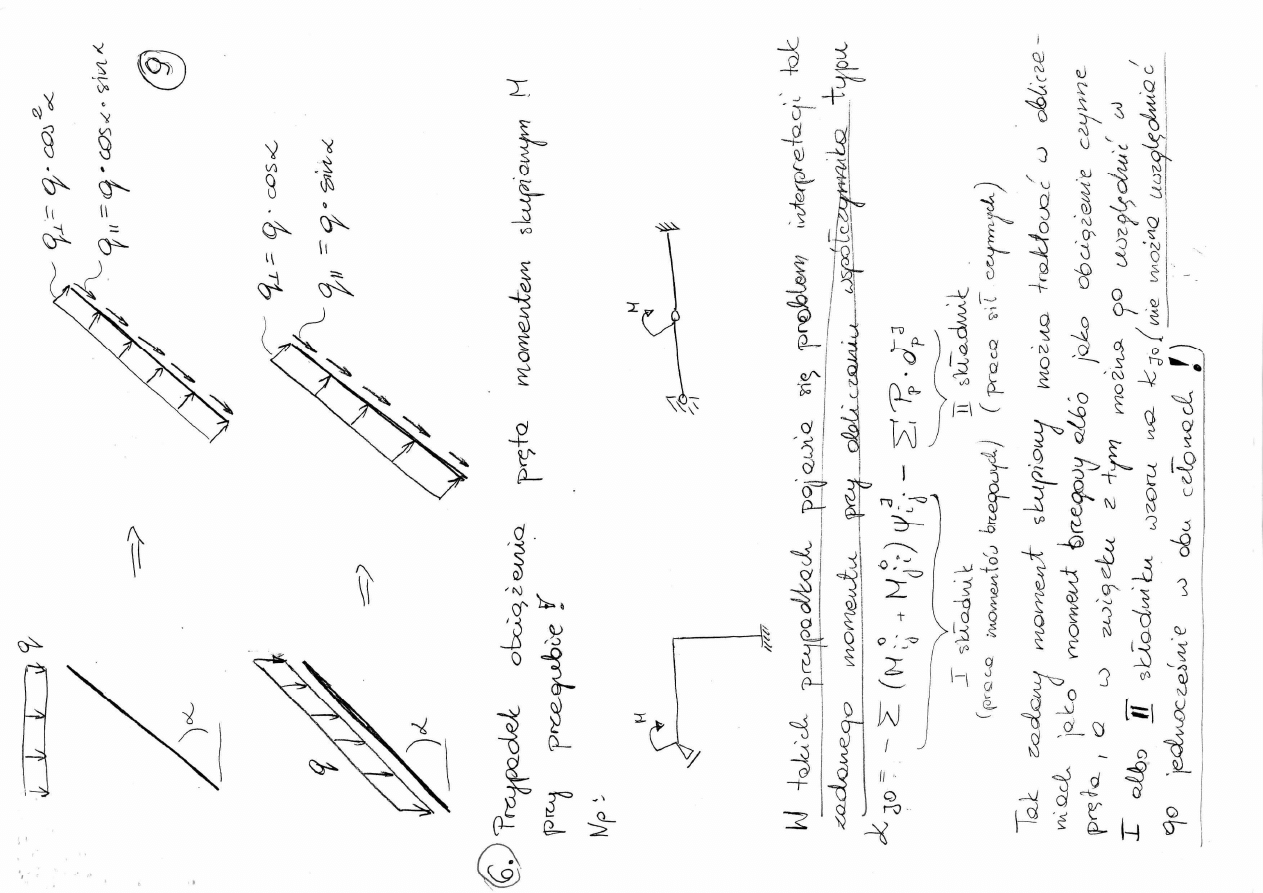 9
q
α
⇒
q⊥ = q · cos²α
q∥ = q · cosα · sinα
q
α
⇒
q⊥ = q · cosα
q∥ = q · sinα
6. Przypadek obciążenia pręta momentem skupionym M
przy przegubie!
Np:
M
M
W takich przypadkach pojawia się problem interpretacji tak
zadanego momentu przy obliczaniu współczynnika typu
kJ0 = - Σ (M°ij + M°ji) ψᴶij - Σ Pp · δpᴶ
I składnik
(praca momentów brzegowych)
II składnik
(praca sił czynnych)
Tak zadany moment skupiony można traktować w oblicze-
niach jako moment brzegowy albo jako obciążenie czynne
pręta, a w związku z tym można go uwzględnić w
I albo II składniku wzoru na kJ0 (nie można uwzględniać
go jednocześnie w obu członach!)